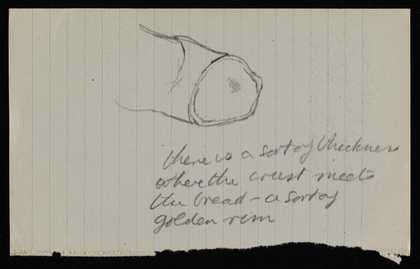 there is a sort of thickness
where the crust meets
the bread – a sort of
golden rim